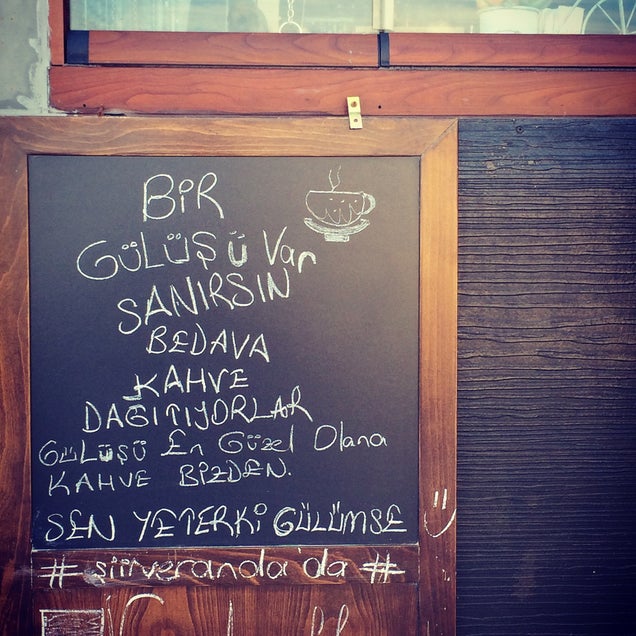 BİR
GÜLÜŞÜ Var
SANIRSIN
BEDAVA
KAHVE
DAĞITIYORLAR
GÜLÜŞÜ En Güzel Olana
KAHVE BİZDEN.
SEN YETERKİ GÜLÜMSE :)
# şiirveranda'da #